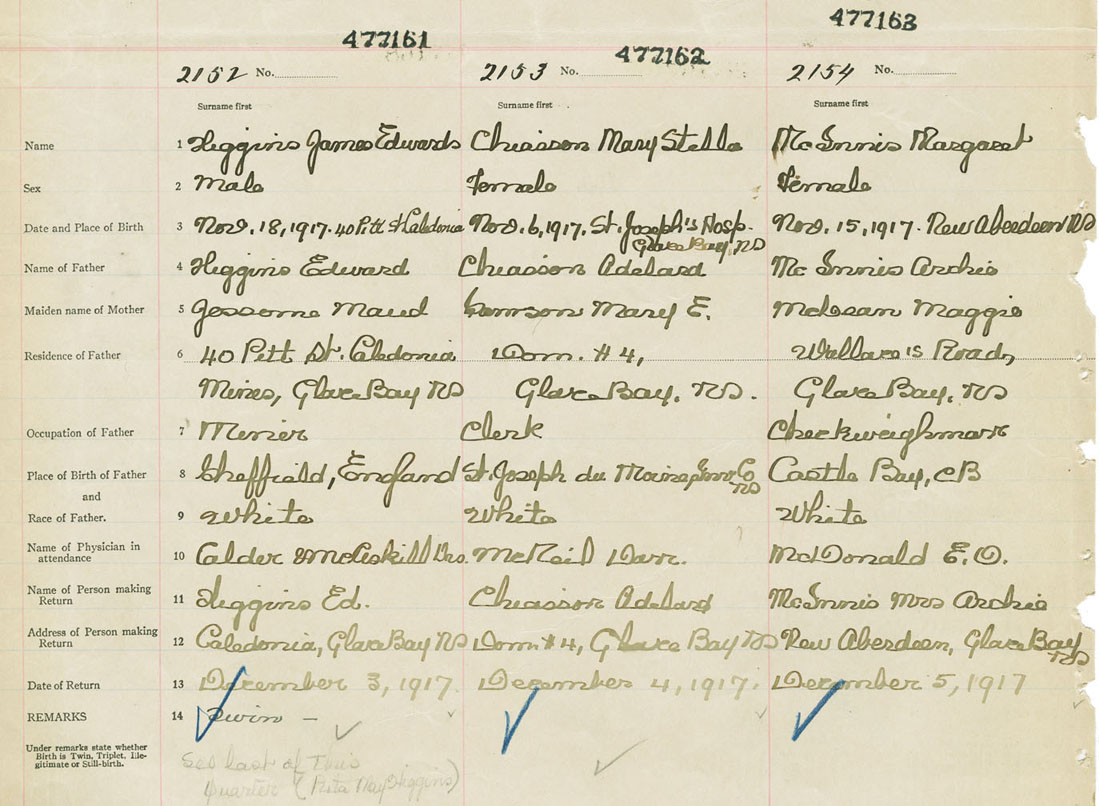 477161 477162 477163
2152 No. 2153 No. 2154 No.
Surname first Surname first Surname first
Name 1 Higgins James Edward Chiasson Mary Stella McInnis Margaret
Sex 2 Male Female Female
Date and Place of Birth 3 Nov. 18, 1917. 40 Pitt St Caledonia Nov. 6, 1917. St. Joseph's Hosp. Nov. 15, 1917. New Aberdeen NS
Glace Bay, NS
Name of Father 4 Higgins Edward Chiasson Adelard McInnis Archie
Maiden name of Mother 5 Maud Samson Mary E. McLean Maggie
Residence of Father 6 40 Pitt St. Caledonia Dom. #4, Wallace's Road,
Mines, Glace Bay NS Glace Bay, NS. Glace Bay, NS
Occupation of Father 7 Miner Clerk Checkweighman
Place of Birth of Father 8 Sheffield, England St. Joseph du Moine, Inv. Co Castle Bay, CB
NS
and
Race of Father. 9 White White White
Name of Physician in
attendance 10 Calder & Drs. McNeil McDonald E. O.
Name of Person making
Return 11 Higgins Ed. Chiasson Adelard McInnis Mrs Archie
Address of Person making
Return 12 Caledonia, Glace Bay NS Dom #4, Glace Bay NS New Aberdeen, Glace Bay
NS
Date of Return 13 December 3, 1917. December 4, 1917. December 5, 1917
REMARKS 14 Twin –
Under remarks state whether
Birth is Twin, Triplet, Ille-
gitimate or Still-birth.
See last of This
Quarter (Rita May Higgins)